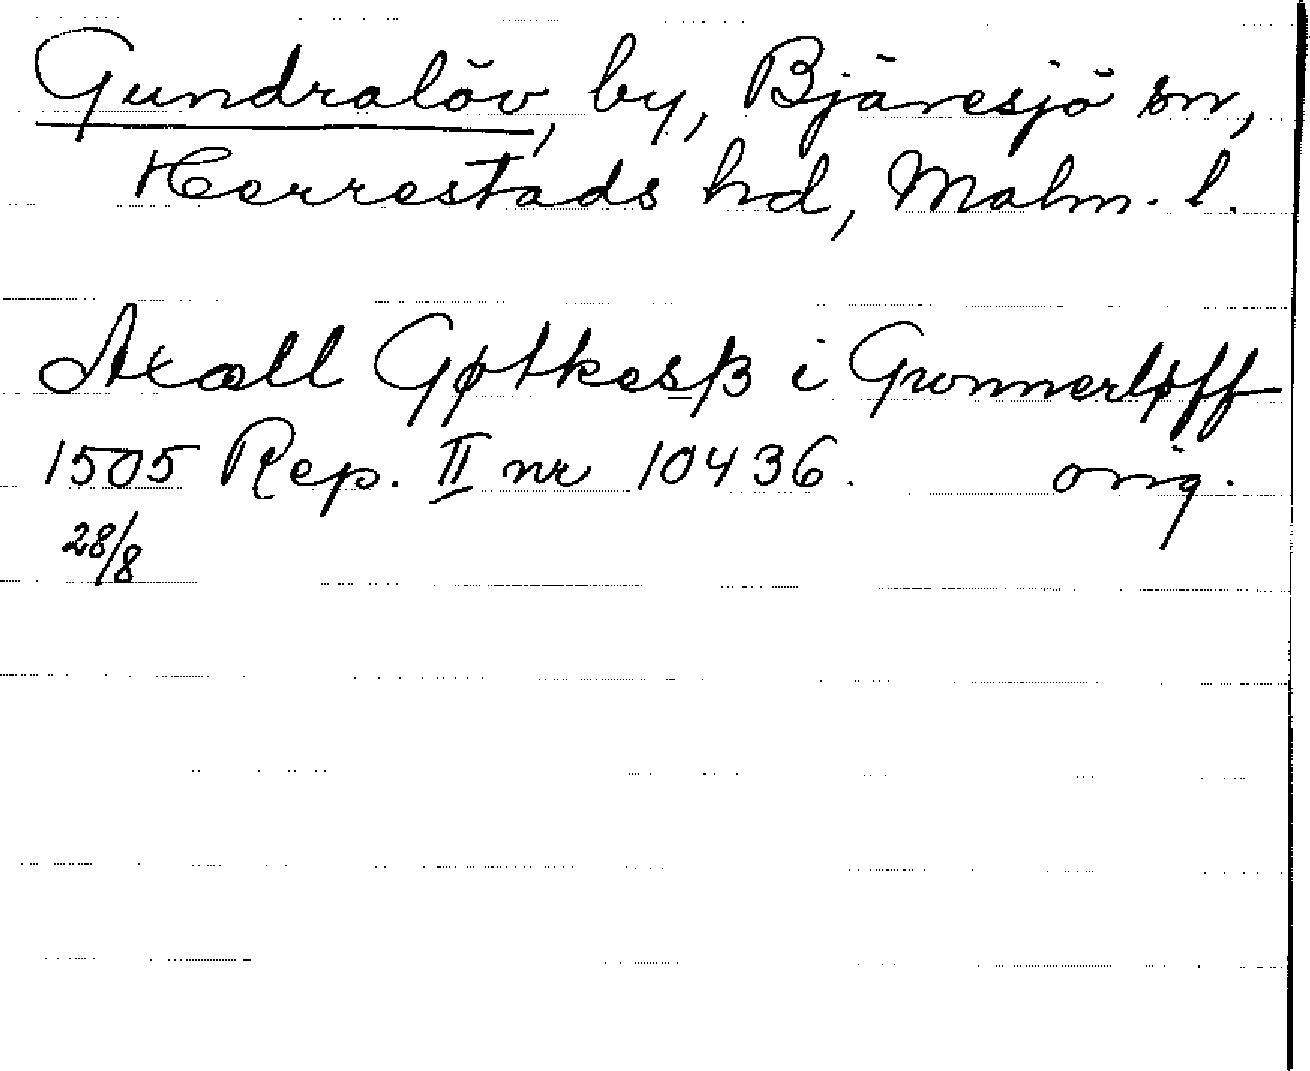 Gundralöv, by, Bjäresjö sn,
Herrestads hd, Malm. l.
Axæll Gøtkesß i Gwnnerløff
1505 Rep. II nr 10436. orig.
28/8